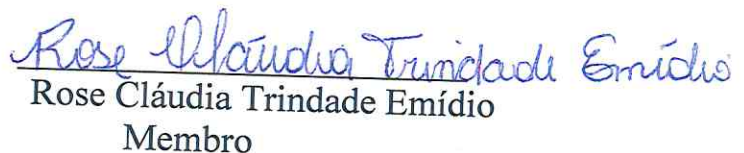 Rose Cláudia Trindade Emídio
Rose Cláudia Trindade Emídio
Membro